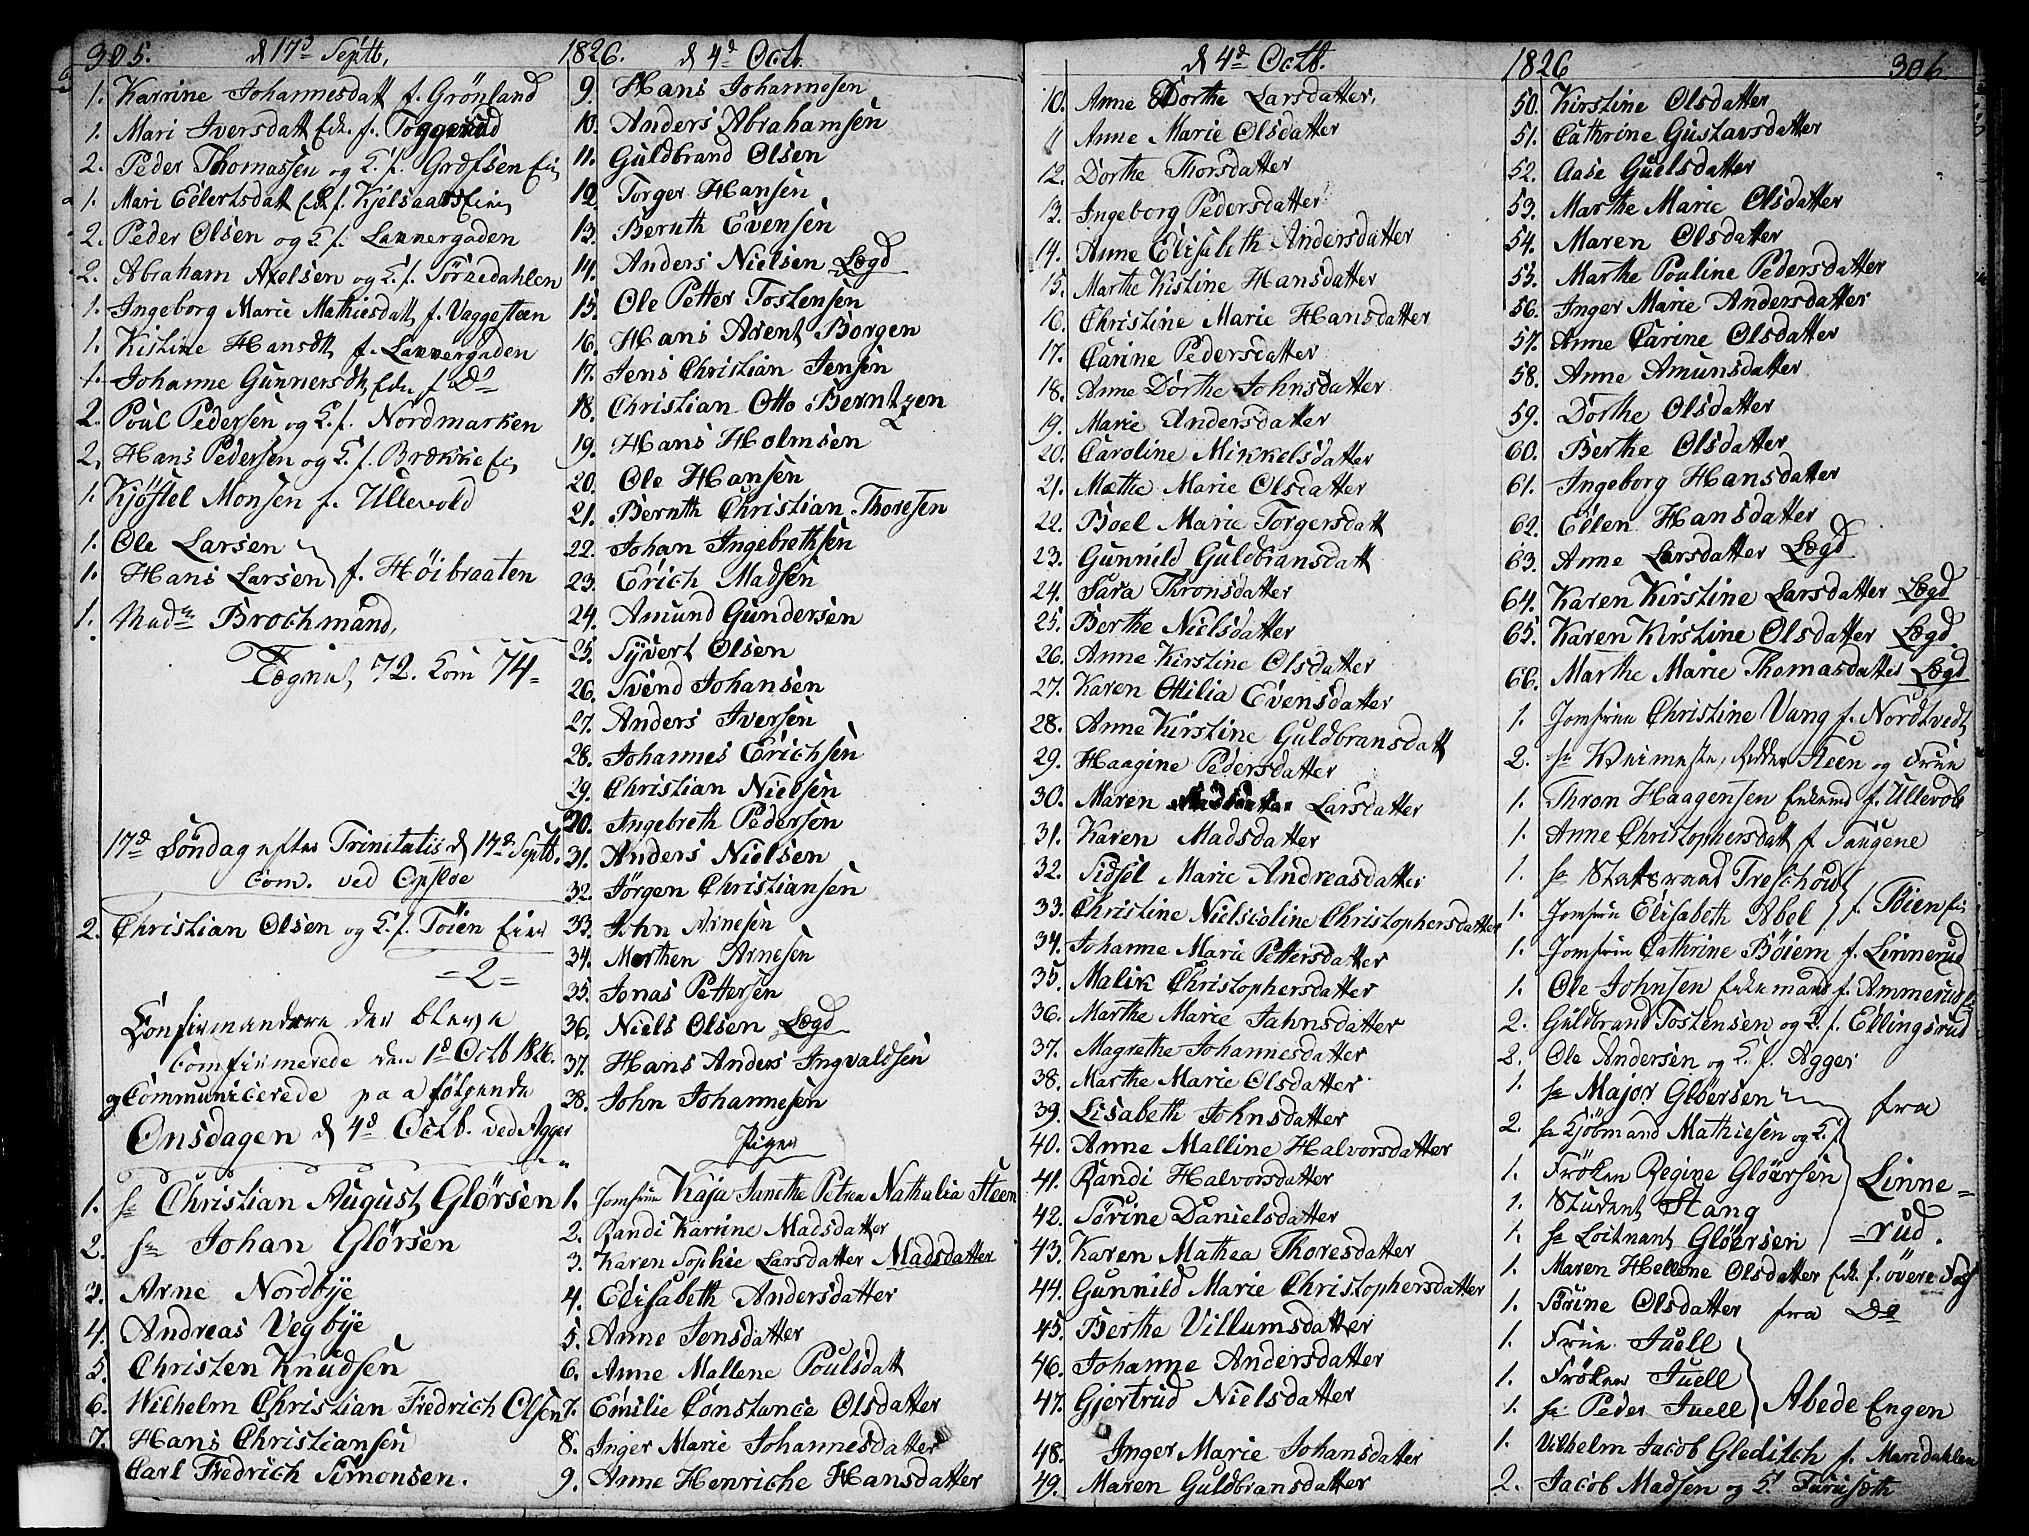 305. d 17d Septb, 1826. d 4d Octb.
1. Karrine Johannesdatt f. Grönland
1. Mari Iversdatt Enk. f. Toggerud
2. Peder Thomassen og K. f. Græfsen Ei,
1. Mari Eilertsdatt Enk f. Kjelsaas Eie,
2. Peder Olsen og K. f. Lannergaden
2. Abraham Axelsen og K. f. Törnedahlen
1. Ingeborg Marie Mathiesdatt, f. Vaggesteen
1. Kistine Hansdtt, f. Lannergaden
1. Johanne Gunnersdtt, Enke f. Do
2. Poul Pedersen og K. f. Nordmarken
2. Hans Pedersen og K. f. Brække Ei,
1. Kjöstel Monsen f. Ullevold
1. Ole Larsen
1. Hans Larsen f. Höibraaten
1. Madm Brochmand,
Tegned, 72. Com 74=
17d Söndag efter Trinitatis d 17de Septb.
Com. ved Opsloe
2. Christian Olsen og K. f. Töien Eier
=2=
Confirmandere der bleve
Comfirmerede den 1d Octb 1826.
og Communicerede paa fölgende
Onsdagen d 4d Octb. ved Agger
1. Hr Christian August Glörsen
2. Hr Johan Glörsen
3. Arne Nordbÿe
4. Andreas Vegbÿe
5. Christen Knudsen
6. Wilhelm Christian Fredrich Olsen
7. Hans Christiansen
Carl Fredrich Simonsen.
9. Hans Johannesen
10. Anders Abrahamsen
11. Guldbrand Olsen
12. Torger Hansen
13. Bernth Evensen
14. Anders Nielsen Lægd
15. Ole Petter Tostensen
16. Hans Arent Borgen
17. Jens Christian Jensen
18. Christian Otto Berntzen
19. Hans Holmsen
20. Ole Hansen
21. Bernth Christian Thoresen
22. Johan Ingebrethsen
23. Erich Madsen
24. Amund Gundersen
25. Syvert Olsen
26. Svend Johansen
27. Anders Iversen
28. Johannes Erichsen
29. Christian Nielsen
20. Ingebreth Pedersen
31. Anders Nielsen
32. Jörgen Christiansen
33. John Arnesen
34. Morthen Arnesen
35. Jonas Pettersen
36. Niels Olsen Lægd
37. Hans Anders Ingvaldsen
28. John Johannesen
Piger
1. Jomfrue Kaja Janethe Petrea Nathalia Steen
2. Randi Karrine Madsdatter
3. Karen Sophie Larsdatter Madsdatter
4. Elisabeth Andersdatter
5. Anne Jensdatter
6. Anne Mallene Poulsdatt
7. Emilie Constance Olsdatter
8. Inger Marie Johannesdatter
9. Anne Henriche Hansdatter
d 4d Octb. 1826 306
10. Anne Dorthe Larsdatter,
11 Anne Marie Olsdatter
12. Dorthe Thorsdatter
13. Ingeborg Pedersdatter
14. Anne Elisabeth Andersdatter
15. Marthe Kistine Hansdatter
16. Christine Marie Hansdatter
17. Carine Pedersdatter
18. Anne Dorthe Johnsdatter
19. Marie Andersdatter
20. Caroline Mikkelsdatter
21. Mathe Marie Olsdatter
22. Boel Marie Torgersdatt
23. Gunnild Guldbransdatt
24. Sara Thronsdatter
25. Berthe Nielsdatter
26. Anne Kirstine Olsdatter
27. Karen Ottilia Evensdatter
28. Anne Kirstine Guldbransdatt
29. Haagine Pedersdatter
30. Maren Larsdatter
31. Karen Madsdatter
32. Sidsel Marie Andreasdatter
33. Christine Nielscoline Christophersdatter
34. Johanne Marie Pettersdatter
35. Malik Christophersdatter
36. Marthe Marie Jahnsdatter
37. Magrethe Johannesdatter
38. Marthe Marie Olsdatter
39. Lisabeth Johnsdatter
40. Anne Malline Halvorsdatter
41. Randi Halvorsdatter
42. Sörine Danielsdatter
43. Karen Mathea Thoresdatter
44. Gunnild Marie Christophersdatter
45. Berthe Villumsdatter
46. Johanne Andersdatter
47. Gjertrud Nielsdatter
48. Inger Marie Johansdatter
49. Maren Guldbransdatter
50. Kirstine Olsdatter
51. Cathrine Gustavsdatter
52. Aase Guulsdatter
53. Marthe Marie Olsdatter
54. Maren Olsdatter
55. Marthe Pouline Pedersdatter
56. Inger Marie Andersdatter
57. Anne Carine Olsdatter
58. Anne Amunsdatter
59. Dorthe Olsdatter
60. Berthe Olsdatter
61. Ingeborg Hansdatter
62. Ellen Hansdatter
63. Anne Larsdatter Lægd
64. Karen Kirstine Larsdatter Lægd
65. Karen Kirstine Olsdatter Lægd
66. Marthe Marie Thomasdatter Lægd
1. Jomfrue Christine Vang f. Nordtvedt,
2. Hr Steen og Frue
1. Thron Haagensen Enkemd f. Ullevold
1. Anne Christophersdatt f Saugene
1. Hr Statsraad Treschow
1. Jomfrue Elisabeth Abel f. Töien Ei
1. Jomfrue Cathrine Böiem f. Linnerud
1. Ole Johnsen Enkemand f. Ammerud Ei
2. Guldbrand Tostensen og K. f. Ellingsrud
2. Ole Andersen og K. f. Agger
1. Hr Major Glöersen fra
2. Hr Kjöbmand Mathiesen og K.
1. Fröken Regine Glöersen Linne=
1. Student Stang
1. Hr Loitnant Glöersen =rud.
1. Maren Hellene Olsdatter Enk. f. övere Foss
1. Sörine Olsdatter fra Do
1. Frue Juell
1. Fröken Juell
1. Hr Peder Juell Abede Engen
1. Vilhelm Jacob Gleditch f. Maridahlen
2. Jacob Madsen og K. Furusæth